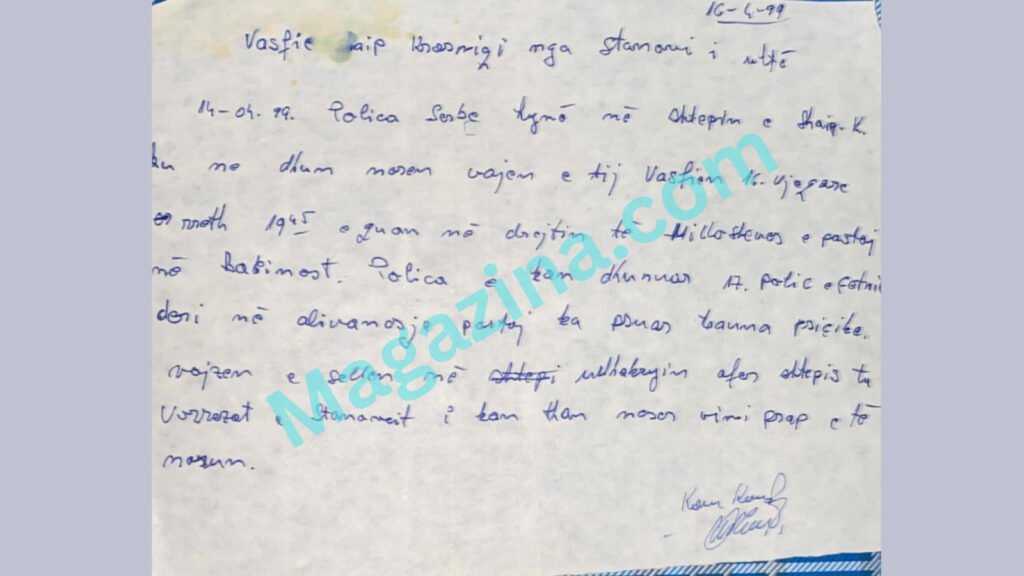 16-4-99
Vasfie Krasniqi nga Stanovci i ultë
14-04.99. Polica Serbe hynë në shtepin e Shaip. K.
ku me dhun morem vajen e tij Vasfien 16. vjeqare
rreth 1945 e quan në drejtim të Millosheves e pastaj
në Babimost. Polica e kan dhunuar 17. polic
deri në alivanosje pastaj ka psuar trauma psiqike.
vajzen e sellen në shtepi udhkryqim afer shtepis tu
Vorrezat e Stanovcit i kan than neser vimi prap e të
marrum.
Magazina.com